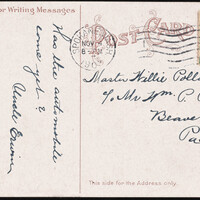 or Writing Messages
Has the automobile
come yet?
Uncle Edwin
POST CARD
NOV
Master Willie Poll
c/o Mr Wm. P. C
Beave
Pa
This side for the Address only.